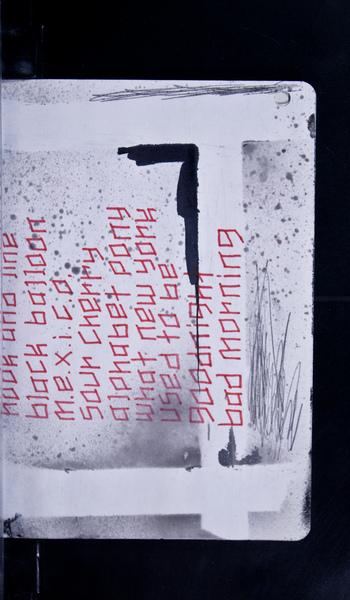 hook and line
black balloon
m.e.x.i.c.o
sour cherry
alphabet pony
what new york
used to be
bad morning